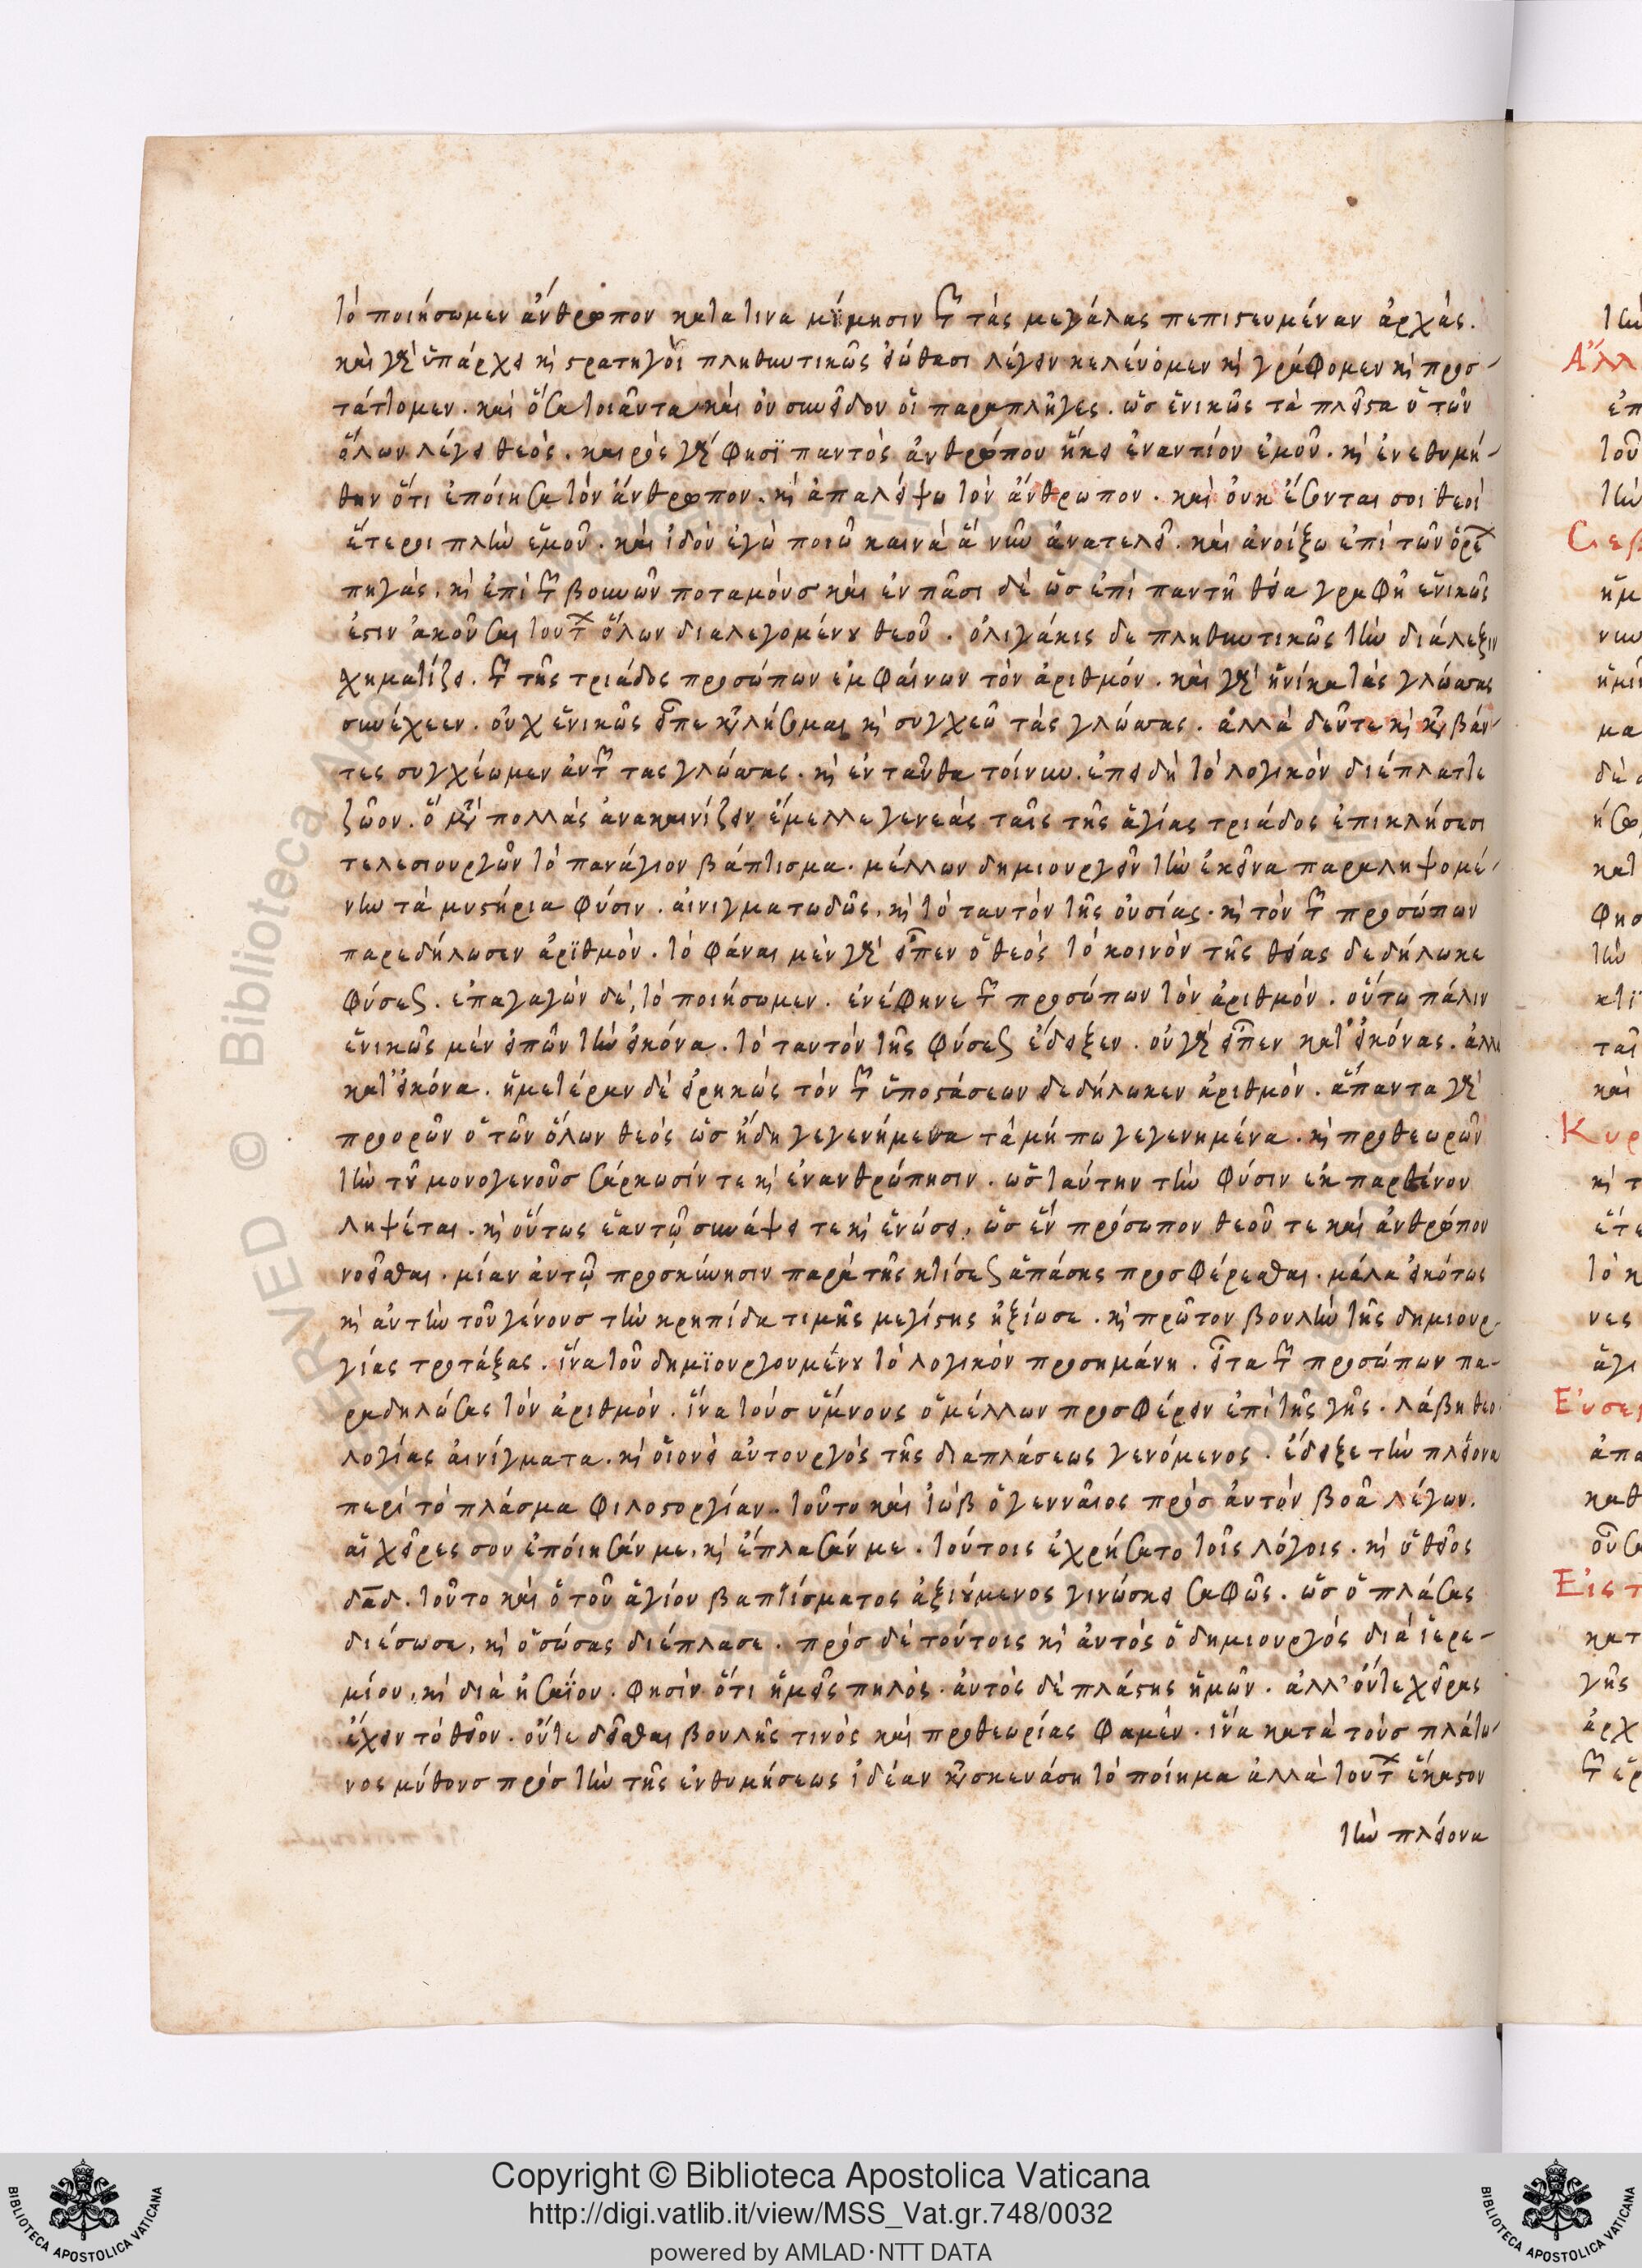 τὸ ποιήσωμεν ἄνθρωπον κατα τινα μίμησιν τῶν τὰς μεγάλας πεπιστευμέναν ἀρχάς.
καὶ γὰρ ὕπαρχοι κὶ στρατηγοὶ πληθυντικῶς εἰώθασι λέγειν κελεύομεν κὶ γράφομεν κὶ προσ-
τάττομεν. καὶ ὅσα τοιαῦτα καὶ οὐ συνεῖδον οἱ παραπλῆγες. ὡς ἑνικῶς τὰ πλεῖστα ὁ τῶν
ὅλων λέγει θεός. καιρὸς γάρ φησϊ παντὸς ἀνθρώπου ἥκει ἐναντίον ἐμοῦ. κὶ ἐνεθυμή-
θην ὅτι ἐποίησα τὸν ἄνθρωπον. κὶ ἀπαλείψω τὸν ἄνθρωπον. καὶ οὐκ ἔσονται σοι θεοὶ
ἕτεροι πλὴν ἐμοῦ. καὶ ἰδοὺ ἐγὼ ποιῶ καινὰ ἃ νῦν ἀνατελεῖ. καὶ ἀνοίξω ἐπὶ τῶν ὀρέων
πηγάς. κὶ ἐπὶ τῶν βουνῶν ποταμούς καὶ ἐν πᾶσι δὲ ὡς ἐπὶ παντῆ θεία γραφῆ ἑνικῶς
ἐστιν ἀκοῦσαι τουτων ὅλων διαλεγομένου θεοῦ. ὀλιγάκις δε πληθυντικῶς τὴν διάλεξιν
χηματίζει. τῶν τῆς τριάδος προσώπων ἐμφαίνων τὸν ἀριθμόν. καὶ γὰρ ἡνίκα τὰς γλώσσας
συνέχεεν. οὐχ ἑνικῶς εἶπε καταλήσομαι κὶ συγχεῶ τὰς γλώσσας. ἀλλὰ δεῦτε κὶ καταβάν-
τες συγχέωμεν αὐτῶν τας γλώσσας. κὶ ἐνταῦθα τοίνυν. ἐπειδὴ τὸ λογικὸν διέπλαττε
ζῶον. ὃ μετὰ πολλὰς ἀνακαινίζειν ἔμελλε γενεὰς ταῖς τῆς ἁγίας τριάδος ἐπικλήσεσι
τελεσιουργῶν τὸ πανάγιον βάπτισμα. μέλλων δημιουργεῖν τὴν ἐκεῖνα παραληψομέ-
νην τὰ μυστήρια φύσιν. αἰνιγματωδῶς, κὶ τὸ ταυτὸν τῆς οὐσίας. κὶ τὸν τῶν προσώπων
παρεδήλωσεν ἀρϊθμόν. τὸ φάναι μὲν γὰρ εἶπεν ὁ θεὸς τὸ κοινὸν τῆς θείας δεδήλωκε
φύσεως. ἐπαγαγὼν δέ, τὸ ποιήσωμεν. ἐνέφηνε τῶν προσώπων τὸν ἀριθμόν. οὕτω πάλιν
ἑνικῶς μὲν εἰπὼν τὴν εἰκόνα. τὸ ταυτὸν τῆς φύσεως ἔδειξεν. οὐ γὰρ εἶπεν κατ' εἰκόνας. ἀλλὰ
κατ' εἰκόνα. ἡμετέραν δὲ εἰρηκώς τὸν τῶν ὑποστάσεων δεδήλωκεν ἀριθμόν. ἅπαντα γὰρ
προορῶν ὁ τῶν ὅλων θεὸς ὡς ἤδη γεγενήμενα τὰ μή πω γεγενημένα. κὶ προθεωρῶν
τὴν τοῦ μονογενοῦς σάρκωσίν τε κὶ ἐνανθρώπησιν. ὡς ταύτην τὴν φύσιν ἐκ παρθένου
ληψέται. κὶ οὕτως ἑαυτῶ συνάψει τε κὶ ἑνώσει, ὡς ἓν πρόσωπον θεοῦ τε καὶ ἀνθρώπου
νοεῖσθαι. μίαν αὐτῶ προσκύνησιν παρὰ τῆς κτίσεως ἁπάσης προσφέρεσθαι. μάλα εἰκότως
κὶ αὐτὴν τοῦ γένους τὴν κρηπίδα τιμῆς μεγίστης ἠξίωσε. κὶ πρῶτον βουλὴν τῆς δημιουρ-
γίας προτάξας. ἵνα τοῦ δημϊουργουμένου τὸ λογικὸν προσημάνη. εἶτα τῶν προσώπων πα-
ραδηλώσας τὸν ἀριθμόν. ἵνα τοὺς ὕμνους ὁ μέλλων προσφέρειν ἐπὶ τῆς γῆς. λάβη θεο-
λογίας αἰνίγματα. κὶ οἱονεὶ αὐτουργὸς τῆς διαπλάσεως γενόμενος. ἔδειξε τὴν πλείονα
περὶ τὸ πλάσμα φιλοστοργίαν. τοῦτο καὶ ἰὼβ ὁ γενναῖος πρὸς αὐτὸν βοᾶ λέγων.
αἱ χεῖρες σου ἐποίησάν με, κὶ ἔπλασάν με. τούτοις ἐχρήσατο τοῖς λόγοις. κὶ ὁ θεῖος
δαδ. τοῦτο καὶ ὁ τοῦ ἁγίου βαπτίσματος ἀξιούμενος γινώσκει σαφῶς. ὡς ὁ πλάσας
διέσωσε, κὶ ὁ σώσας διέπλασε. πρὸς δὲ τούτοις κὶ αὐτὸς ὁ δημιουργὸς διὰ ἱερε-
μίου, κὶ διὰ ἡσαΐου. φησὶν ὅτι ἡμεῖς πηλὸς. αὐτὸς δὲ πλάστης ἡμῶν. ἀλλ' οὔτε χεῖρας
ἔχειν τὸ θεῖον. οὔτε δεῖσθαι βουλῆς τινὸς καὶ προθεωρίας φαμέν. ἵνα κατὰ τοὺς πλάτω-
νος μύθους πρὸς τὴν τῆς ἐνθυμήσεως ἰδέαν κατασκευάση τὸ ποίημα ἀλλὰ τούτων ἕκαστον
τὴν πλείονα